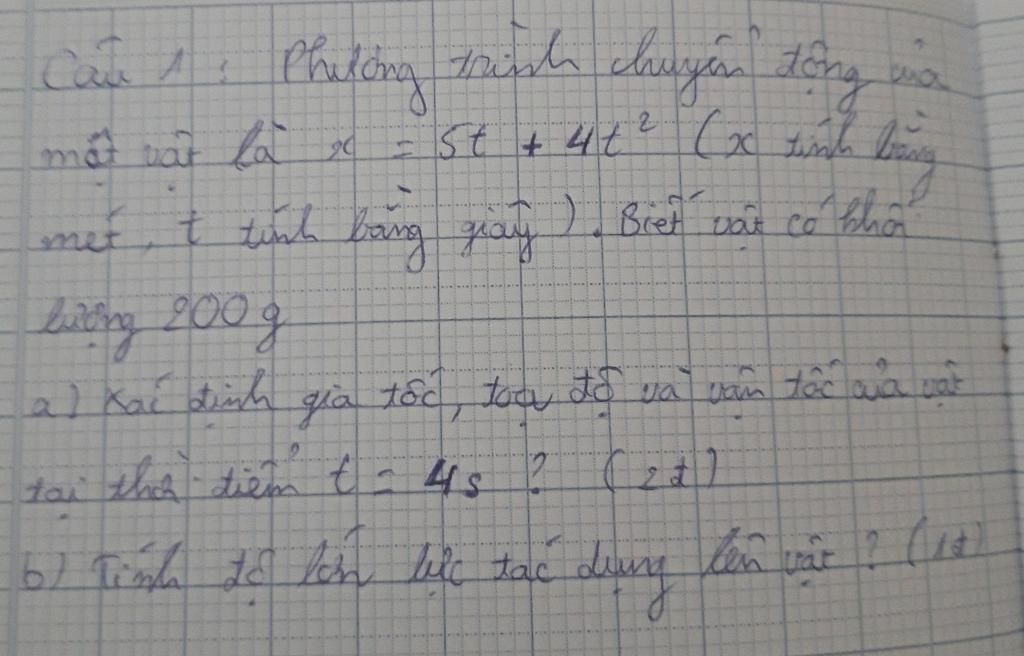 Câu 1 : Phương trình chuyển động của
một vật là x = 5t + 4t² (x tính bằng
mét, t tính bằng giây). Biết vật có khối
lượng 200g
a) Xác định gia tốc, toạ độ và vận tốc của vật
tại thời điểm t = 4s ? (2đ)
b) Tính độ lớn lực tác dụng lên vật ? (1đ)